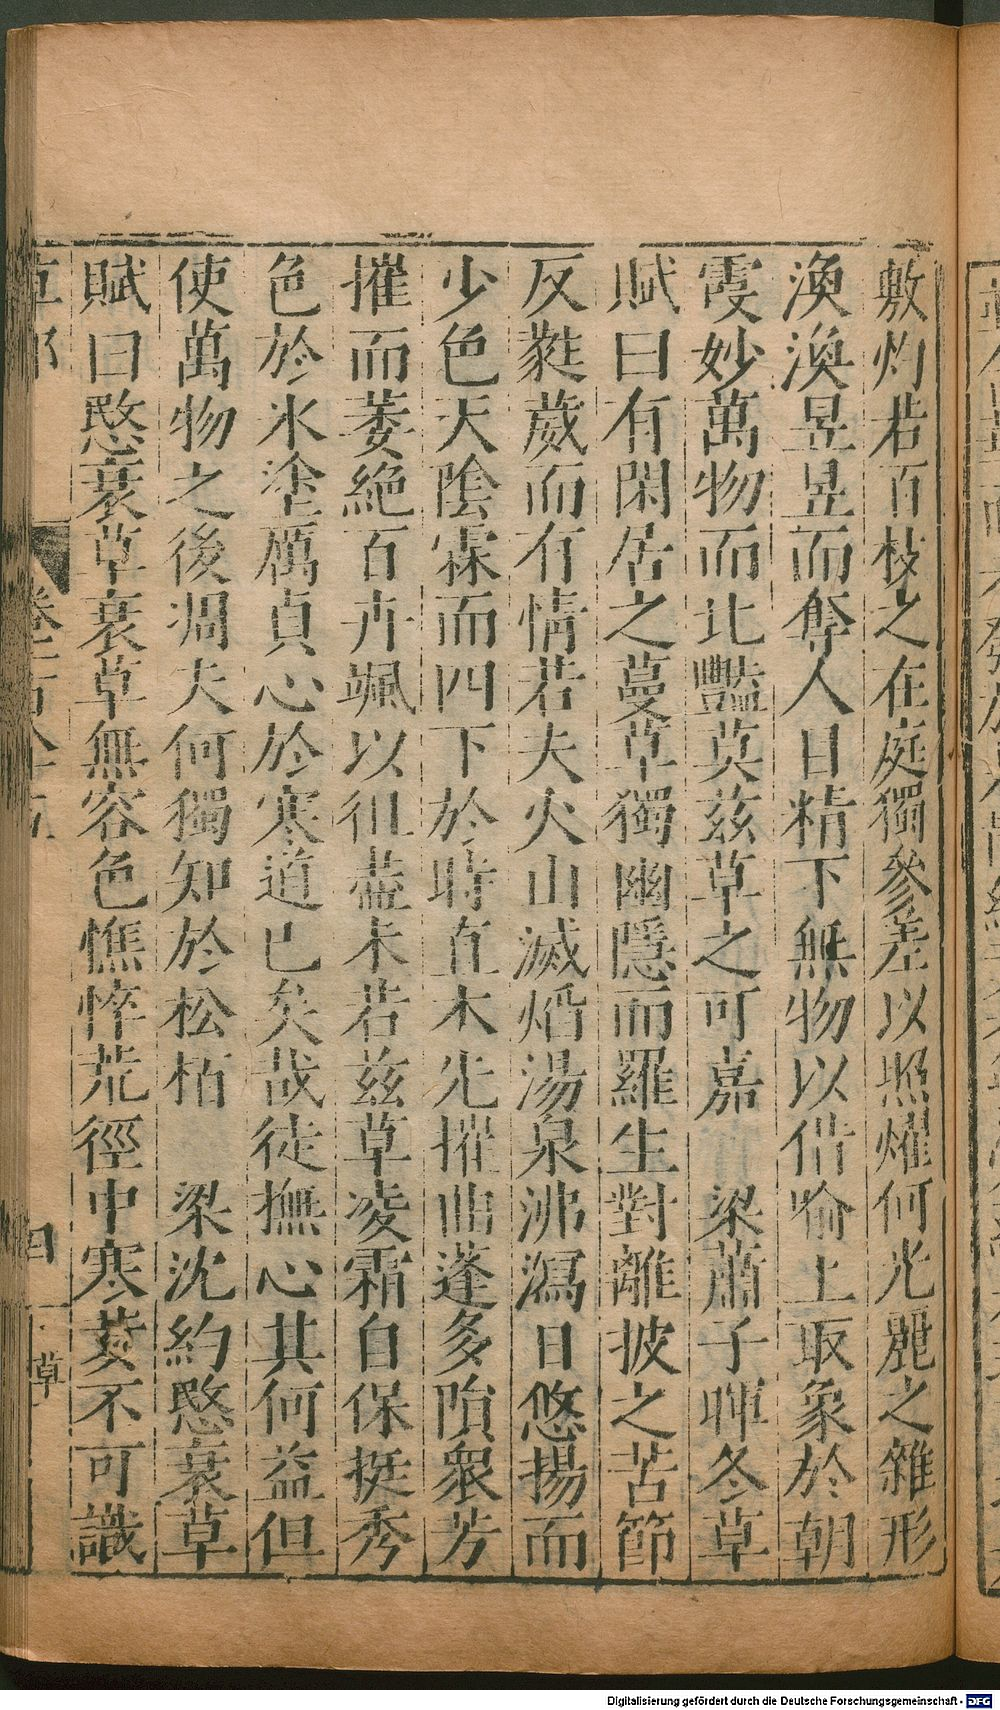 敷灼若百枝之在庭獨參差以照燿何光麗之雜形
渙渙昱昱而奪人目精下無物以借喻上取象於朝
霞妙萬物而比豔莫茲草之可嘉 梁蕭子暉冬草
賦曰有閑居之蔓草獨幽隱而羅生對離披之苦節
反蕤葳而有情若夫火山滅焰湯泉沸瀉日悠揚而
少色天陰霖而四下於時直木先摧曲蓬多隕衆芳
摧而萎絕百卉颯以徂盡未若茲草凌霜自保挺秀
色於氷塗厲貞心於寒道已矣哉徒撫心其何益但
使萬物之後凋夫何獨知於松栢 梁沈約愍衰草
賦曰愍衰草衰草無容色憔悴荒徑中寒荄不可識
草部 卷 四 草
Digitalisierung gefördert durch die Deutsche Forschungsgemeinschaft - DFG